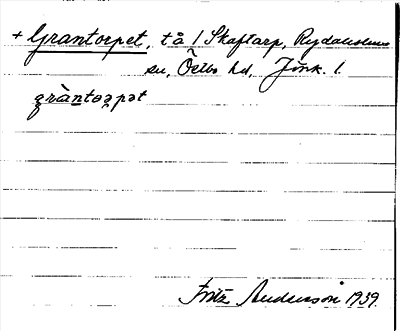 + Grantorpet, tå / Skaftarp, Rydaholms
sn, Östbo hd, Jönk. l.
gràntoppət
Fritz Andersson 1939.